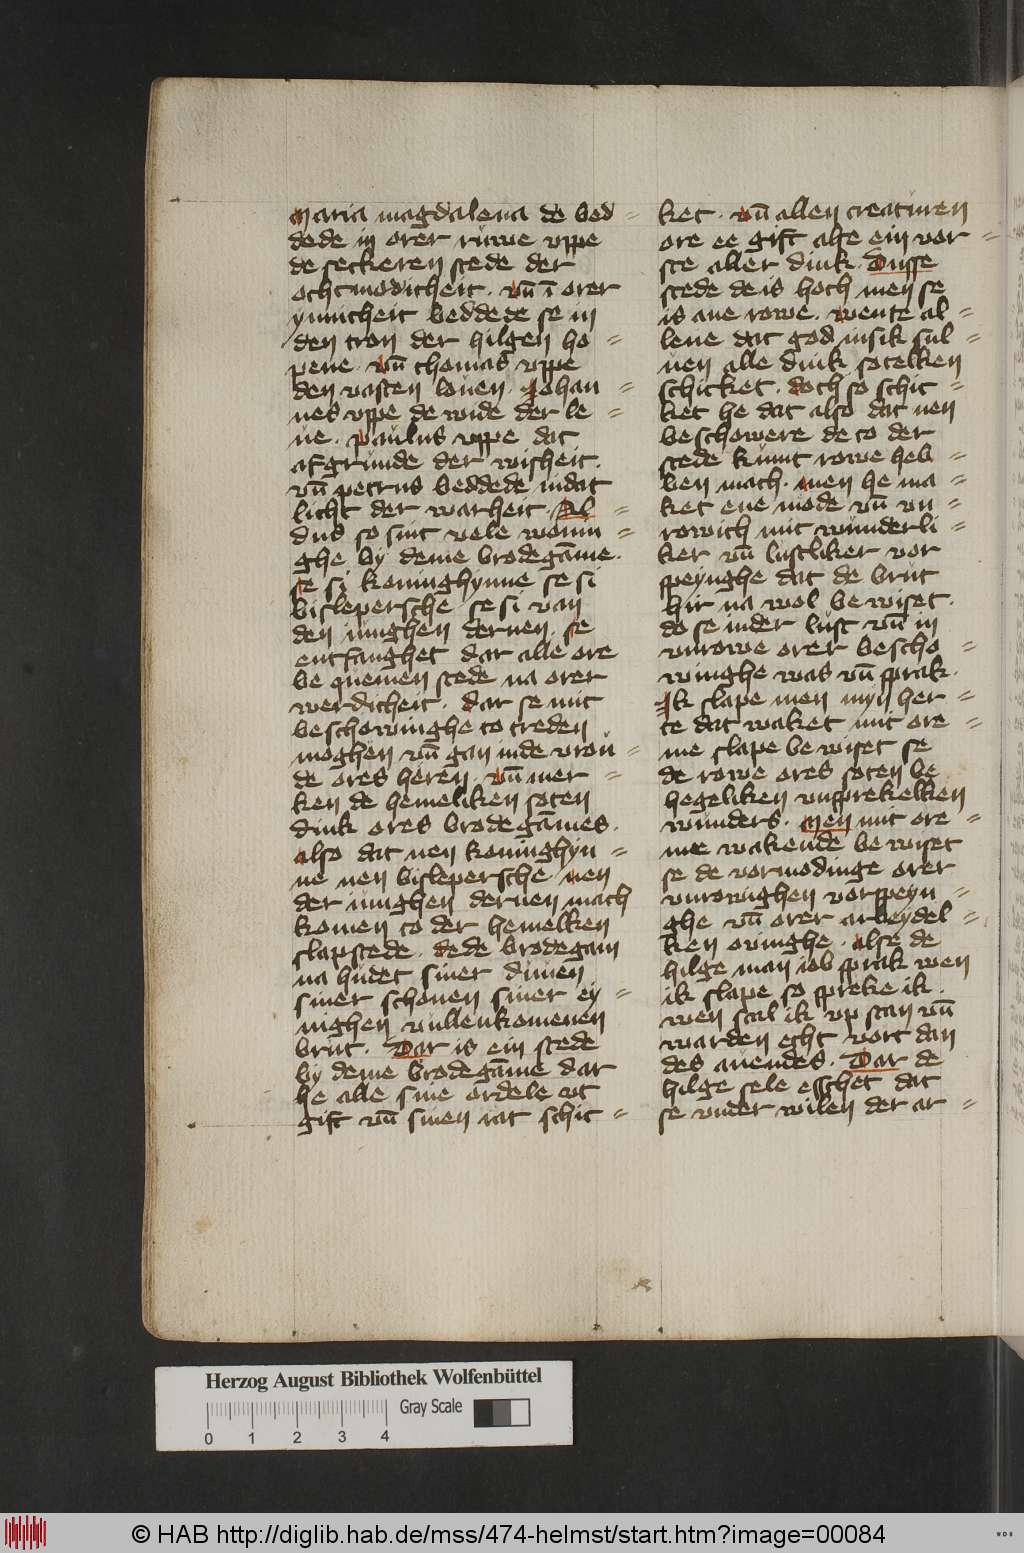 Maria magdalena de bed =
dede in orer ruwe vppe
de seckeren stede der
othmodicheit · vn̄ ī orer
ynnicheit beddede se in
den tron der hilgen ho =
pene · vn̄ thomas vppe
den vasten louen · Johan =
nes vppe de wide der le =
ue · paulus vppe dat
afgrunde der wisheit ·
vn̄ petrus beddede indat
licht der warheit · Al =
dus so sint vele wonin =
ghe by deme brodegāme ·
se si koninghynne se si
bislepersche se si van
den iunghen dernen · se
entfanghet dar alle ore
be quemen stede na orer
werdicheit · dar se mit
beschowinghe to treden
moghen vn̄ gan inde vrou =
de ores heren · vn̄ mer =
ken de hemeliken soten
dink ores brodegāmes ·
also dat nen koninghyn =
ne nen bislepersche nen
der iunghen dernen mach
komen to der hemelken
slapstede · dede brodegam
na hudet siner duuen
siner schonen siner ey =
nighen vullenkomenen
brut · Dar is ein stede
by deme brodegāme dar
he alle sine ordele vt
gift vn̄ sinen rat schic =
ket · vn̄ allen creaturen
ore ee gift alse ein vor =
ste aller dink · Dusse
stede de is hoch men se
is ane rowe · wente al =
lene dat god insik sul =
uen alle dink sotelken
schicket · doch so schic =
ket he dat also dat nen
beschowere de to der
stede kumt rowe heb =
ben mach · men he ma =
ket ene mode vn̄ vn =
rowich mit wunderli =
ker vn̄ lustliker vor
speynghe dat de brut
hir na wol be wiset ·
do se inder lust vn̄ in
vnrowe orer bescho =
winghe was vn̄ sprak ·
Ik slape men myn her =
te dat waket mit ore =
me slape be wiset se
de rowe ores soten be
hegeliken vnsprekelken
wunders · Men mit ore =
me wakende be wiset
se de vormodinge orer
vnrowighen vorspeyn =
ghe vn̄ orer arbeydel =
ken ouinghe · alse de
hilge man iob sprak wen
ik slape so spreke ik ·
wen scal ik vp stan vn̄
warden echt vort dan
des auendes · Dar de
hilge sele esschet dat
se vnder wilen der ar =
Herzog August Bibliothek Wolfenbüttel
Gray Scale
0 1 2 3 4
© HAB http://diglib.hab.de/mss/474-helmst/start.htm?image=00084